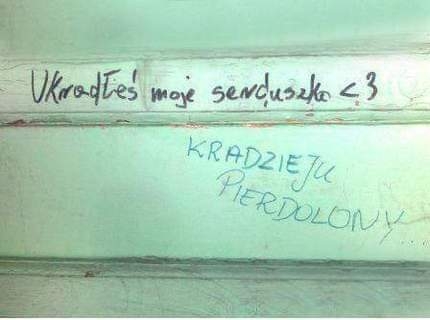 Ukradłeś moje serduszko <3
KRADZIEJU
PIERDOLONY...